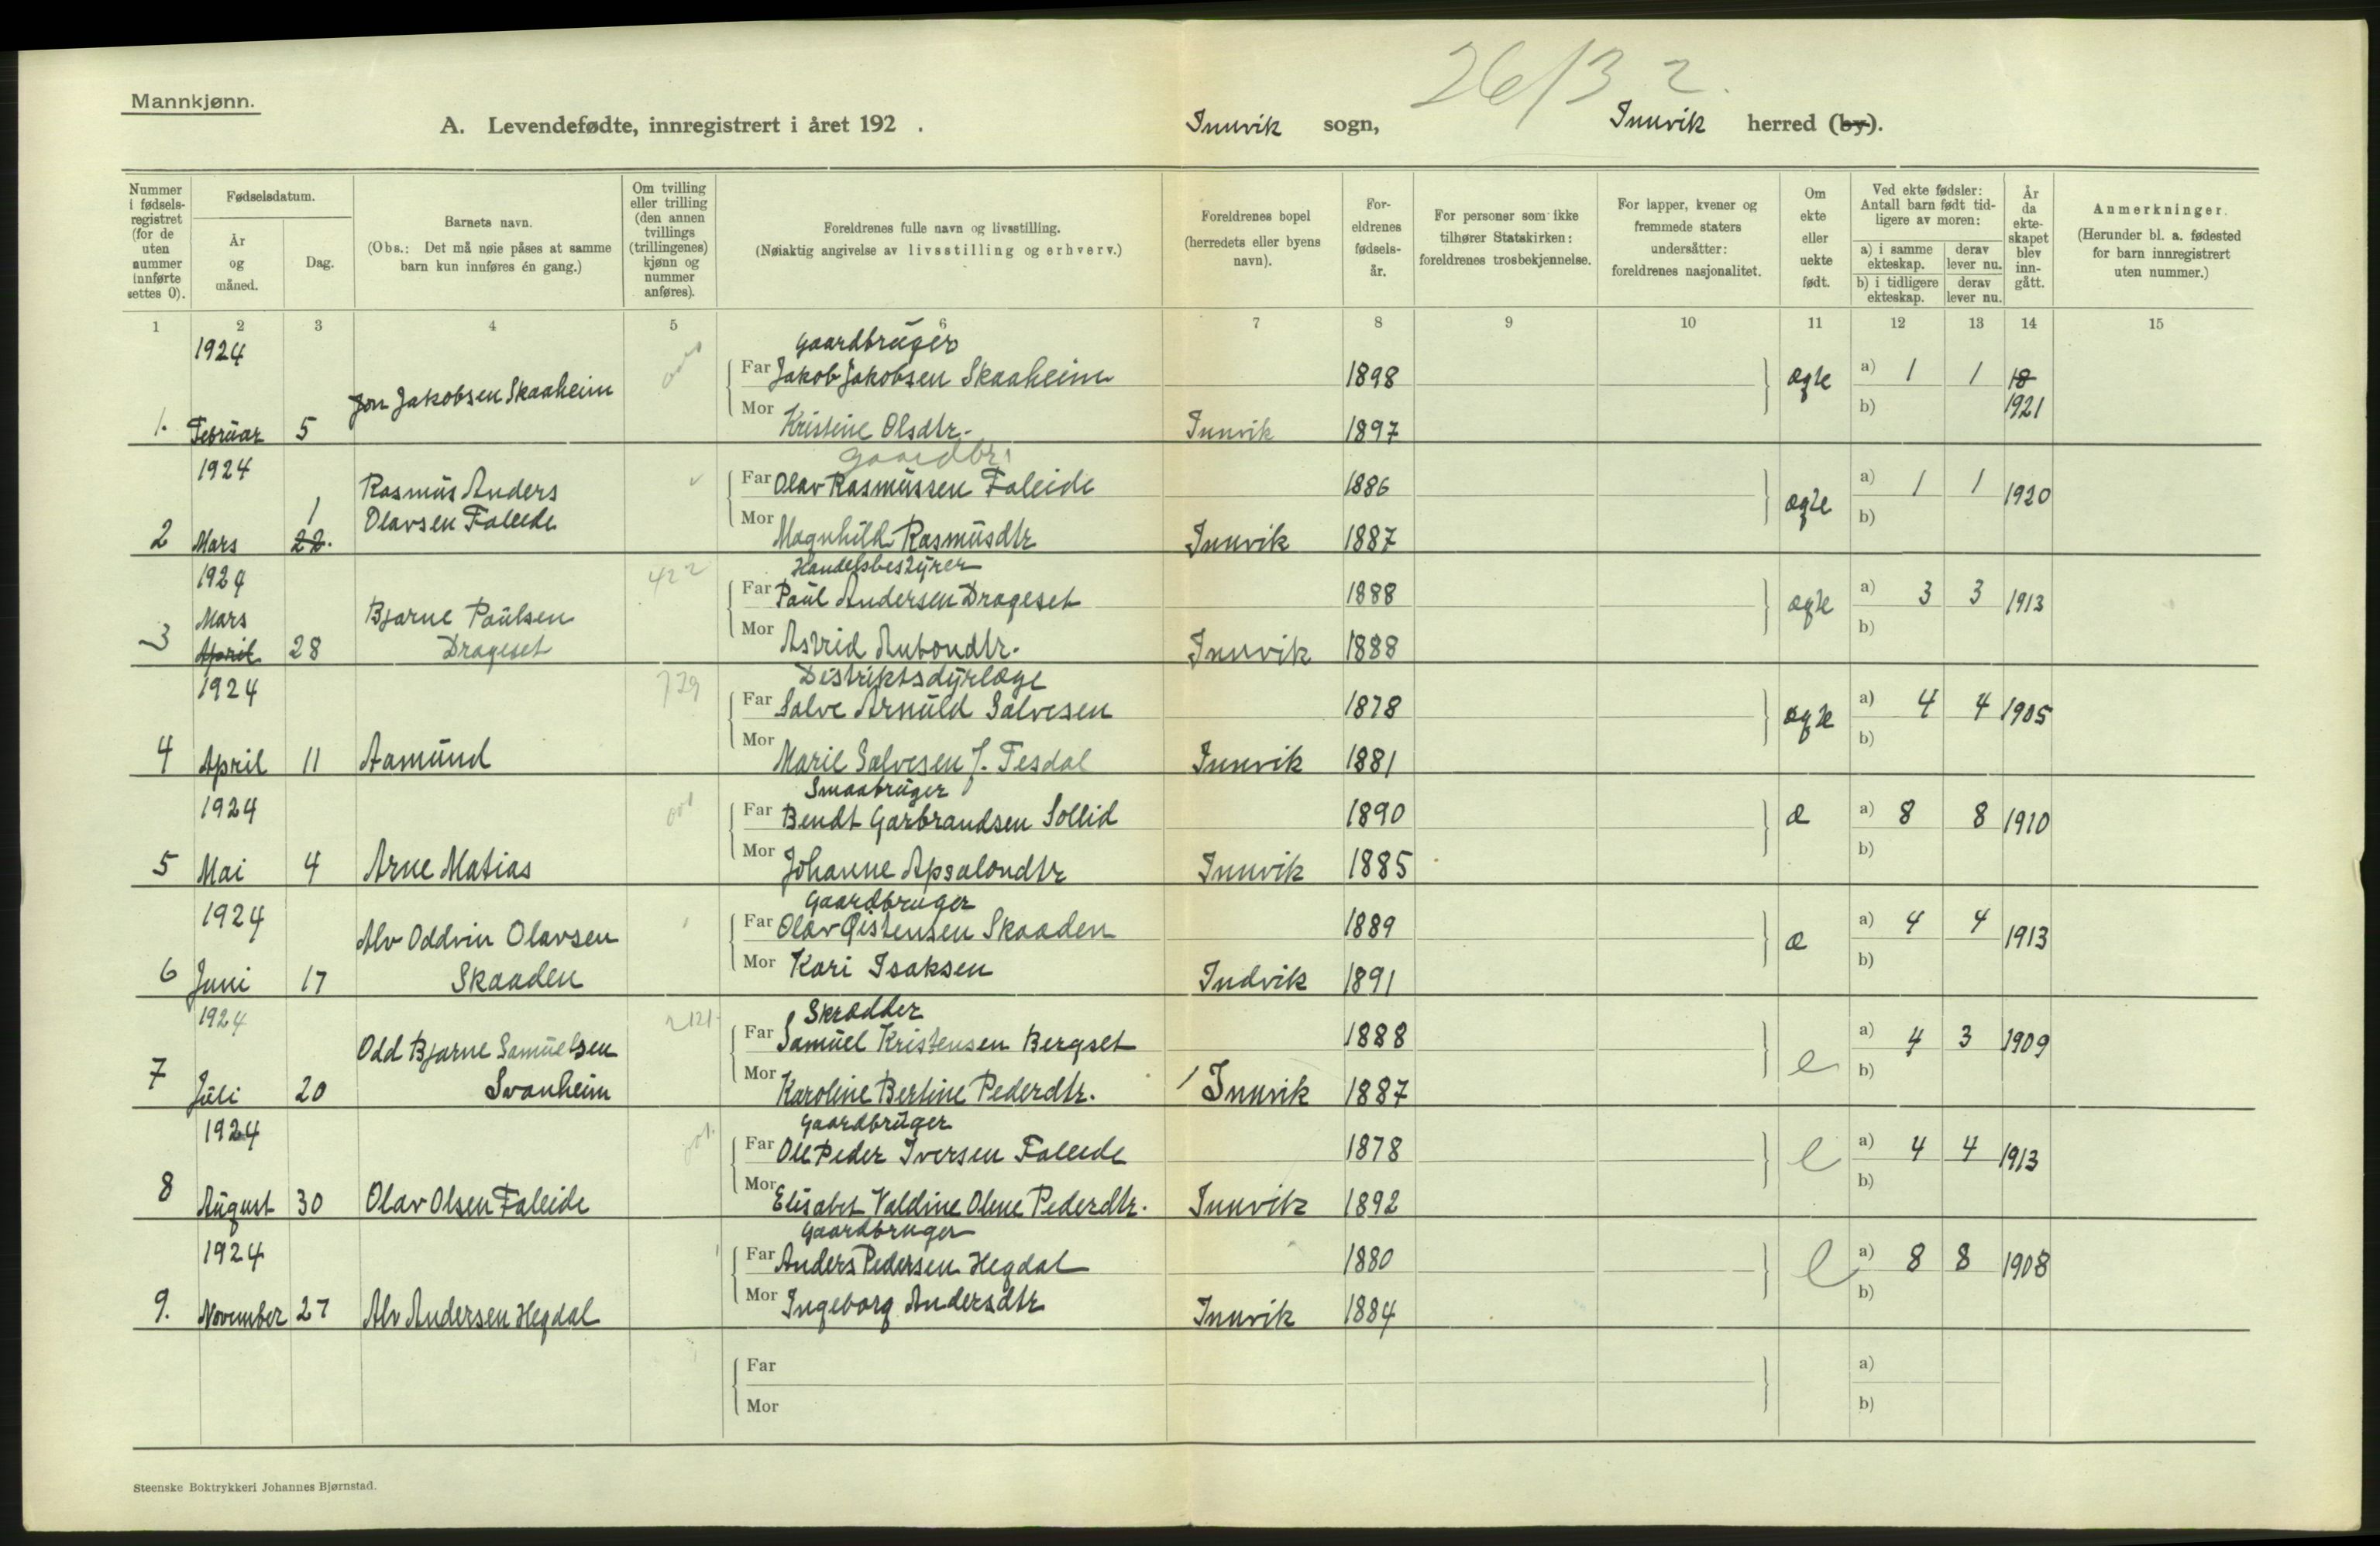 26/3 2.
Mannkjønn.
A. Levendefødte, innregistrert i året 192 . Innvik sogn, Innvik herred (by).
Nummer i fødselsregistret (for de uten nummer innførte settes 0).
Fødselsdatum.
År og måned.
Dag.
Barnets navn.
(Obs.: Det må nøie påses at samme barn kun innføres én gang.)
Om tvilling eller trilling (den annen tvillings (trillingenes) kjønn og nummer anføres).
Foreldrenes fulle navn og livsstilling.
(Nøiaktig angivelse av livsstilling og erhverv.)
Foreldrenes bopel (herredets eller byens navn).
Foreldrenes fødselsår.
For personer som ikke tilhører Statskirken: foreldrenes trosbekjennelse.
For lapper, kvener og fremmede staters undersåtter: foreldrenes nasjonalitet.
Om ekte eller uekte født.
Ved ekte fødsler: Antall barn født tidligere av moren:
a) i samme ekteskap. derav lever nu.
b) i tidligere ekteskap. derav lever nu.
År da ekteskapet blev inngått.
Anmerkninger.
(Herunder bl. a. fødested for barn innregistrert uten nummer.)
1 2 3 4 5 6 7 8 9 10 11 12 13 14 15
1924 Gaardbruger
Jon Jakobsen Skaaheim Far Jakob Jakobsen Skaaheim 1898 ægte a) 1 1 18
1. Februar 5 Mor Kristine Olsdtr. Innvik 1897 b) 1921
1924 gaardbr.
Rasmus Anders Far Olav Rasmussen Faleide 1886 ægte a) 1 1 1920
1
2 Mars 22. Olavsen Faleide Mor Magnhild Rasmusdtr Innvik 1887 b)
1924 422 Handelsbestyrer
Mars Bjarne Paulsen Far Paul Andersen Drageset 1888 ægte a) 3 3 1913
3 April 28 Drageset Mor Astrid Antondtr. Innvik 1888 b)
1924 729 Distriktsdyrlæge
Far Salve Arnuld Salvesen 1878 ægte a) 4 4 1905
4 April 11 Aamund Mor Marie Salvesen f. Tesdal Innvik 1881 b)
1924 Smaabruger
Far Bendt Garbrandsen Sollid 1890 æ a) 8 8 1910
5 Mai 4 Arne Matias Mor Johanne Apsalondtr Innvik 1885 b)
1924 Gaardbruger
Alv Oddvin Olavsen Far Olav Øistensen Skaaden 1889 æ a) 4 4 1913
6 Juni 17 Skaaden Mor Kari Isaksen Indvik 1891 b)
1924 2121 Skrædder
Odd Bjarne Samuelsen Far Samuel Kristensen Bergset 1888 e a) 4 3 1909
7 Juli 20 Svanheim Mor Karoline Bertine Pederdtr. Innvik 1887 b)
1924 Gaardbruger
Far Ole Peder Iversen Faleide 1878 e a) 4 4 1913
8 August 30 Olav Olsen Faleide Mor Elisabet Valdine Oline Pederdtr. Innvik 1892 b)
1924 Gaardbruger
Far Anders Pedersen Hegdal 1880 e a) 8 8 1908
9. November 27 Alv Andersen Hegdal Mor Ingeborg Andersdtr Innvik 1884 b)
Far a)
Mor b)
Steenske Boktrykkeri Johannes Bjørnstad.